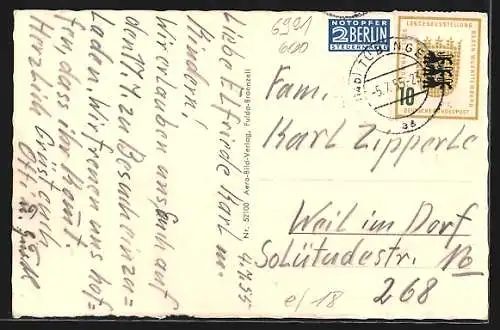 4.7.55
Liebe Elfriede Karl u.
Kinder!
Wir erlauben uns Euch auf
den 17.7. zu Besuch einzu=
laden. Wir freuen uns hof=
fen dass ihr kommt.
Herzlich grüssen Euch
6921
600
NOTOPFER
2 BERLIN
STEUERMARKE
LANDESAUSSTELLUNG
BADEN-WÜRTTEMBERG
10
DEUTSCHE BUNDESPOST
TÜBINGEN
-5.7.55-2
Nr. 52100 Aero-Bild-Verlag, Fulda-Bronnzell
Fam.
Karl Zipperle
Weil im Dorf
Solitüdestr.
268
e/18